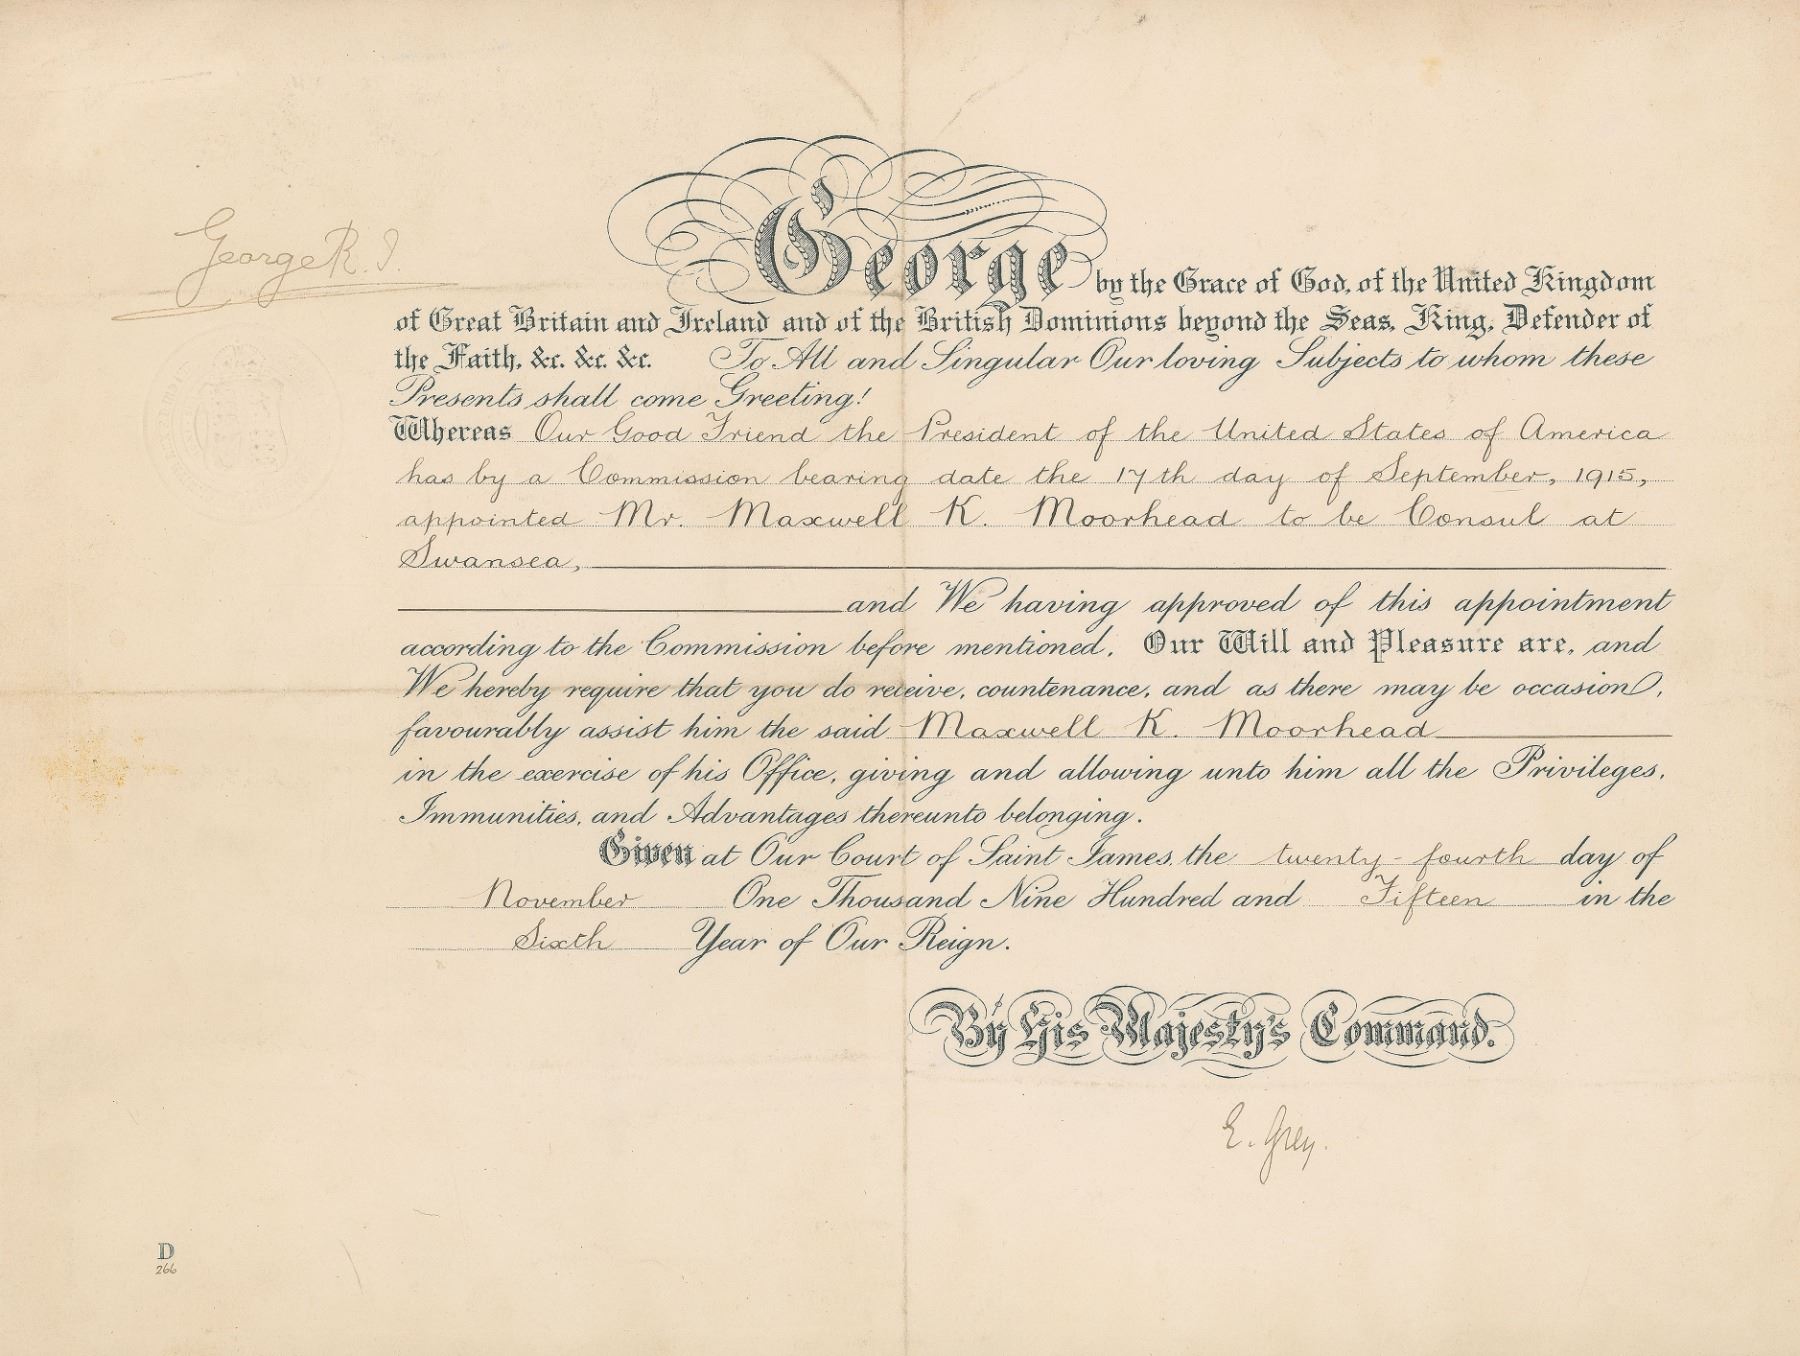 George R.I.
George by the Grace of God, of the United Kingdom
of Great Britain and Ireland and of the British Dominions beyond the Seas, King, Defender of
the Faith, &c. &c. &c. To All and Singular Our loving Subjects to whom these
Presents shall come Greeting!
Whereas Our Good Friend the President of the United States of America
has by a Commission bearing date the 17th day of September, 1915,
appointed Mr. Maxwell K. Moorhead to be Consul at
Swansea,
and We having approved of this appointment
according to the Commission before mentioned, Our Will and Pleasure are, and
We hereby require that you do receive, countenance, and as there may be occasion,
favourably assist him the said Maxwell K. Moorhead
in the exercise of his Office, giving and allowing unto him all the Privileges,
Immunities, and Advantages thereunto belonging.
Given at Our Court of Saint James, the twenty-fourth day of
November One Thousand Nine Hundred and Fifteen in the
Sixth Year of Our Reign.
By His Majesty's Command.
E. Grey.
D
266